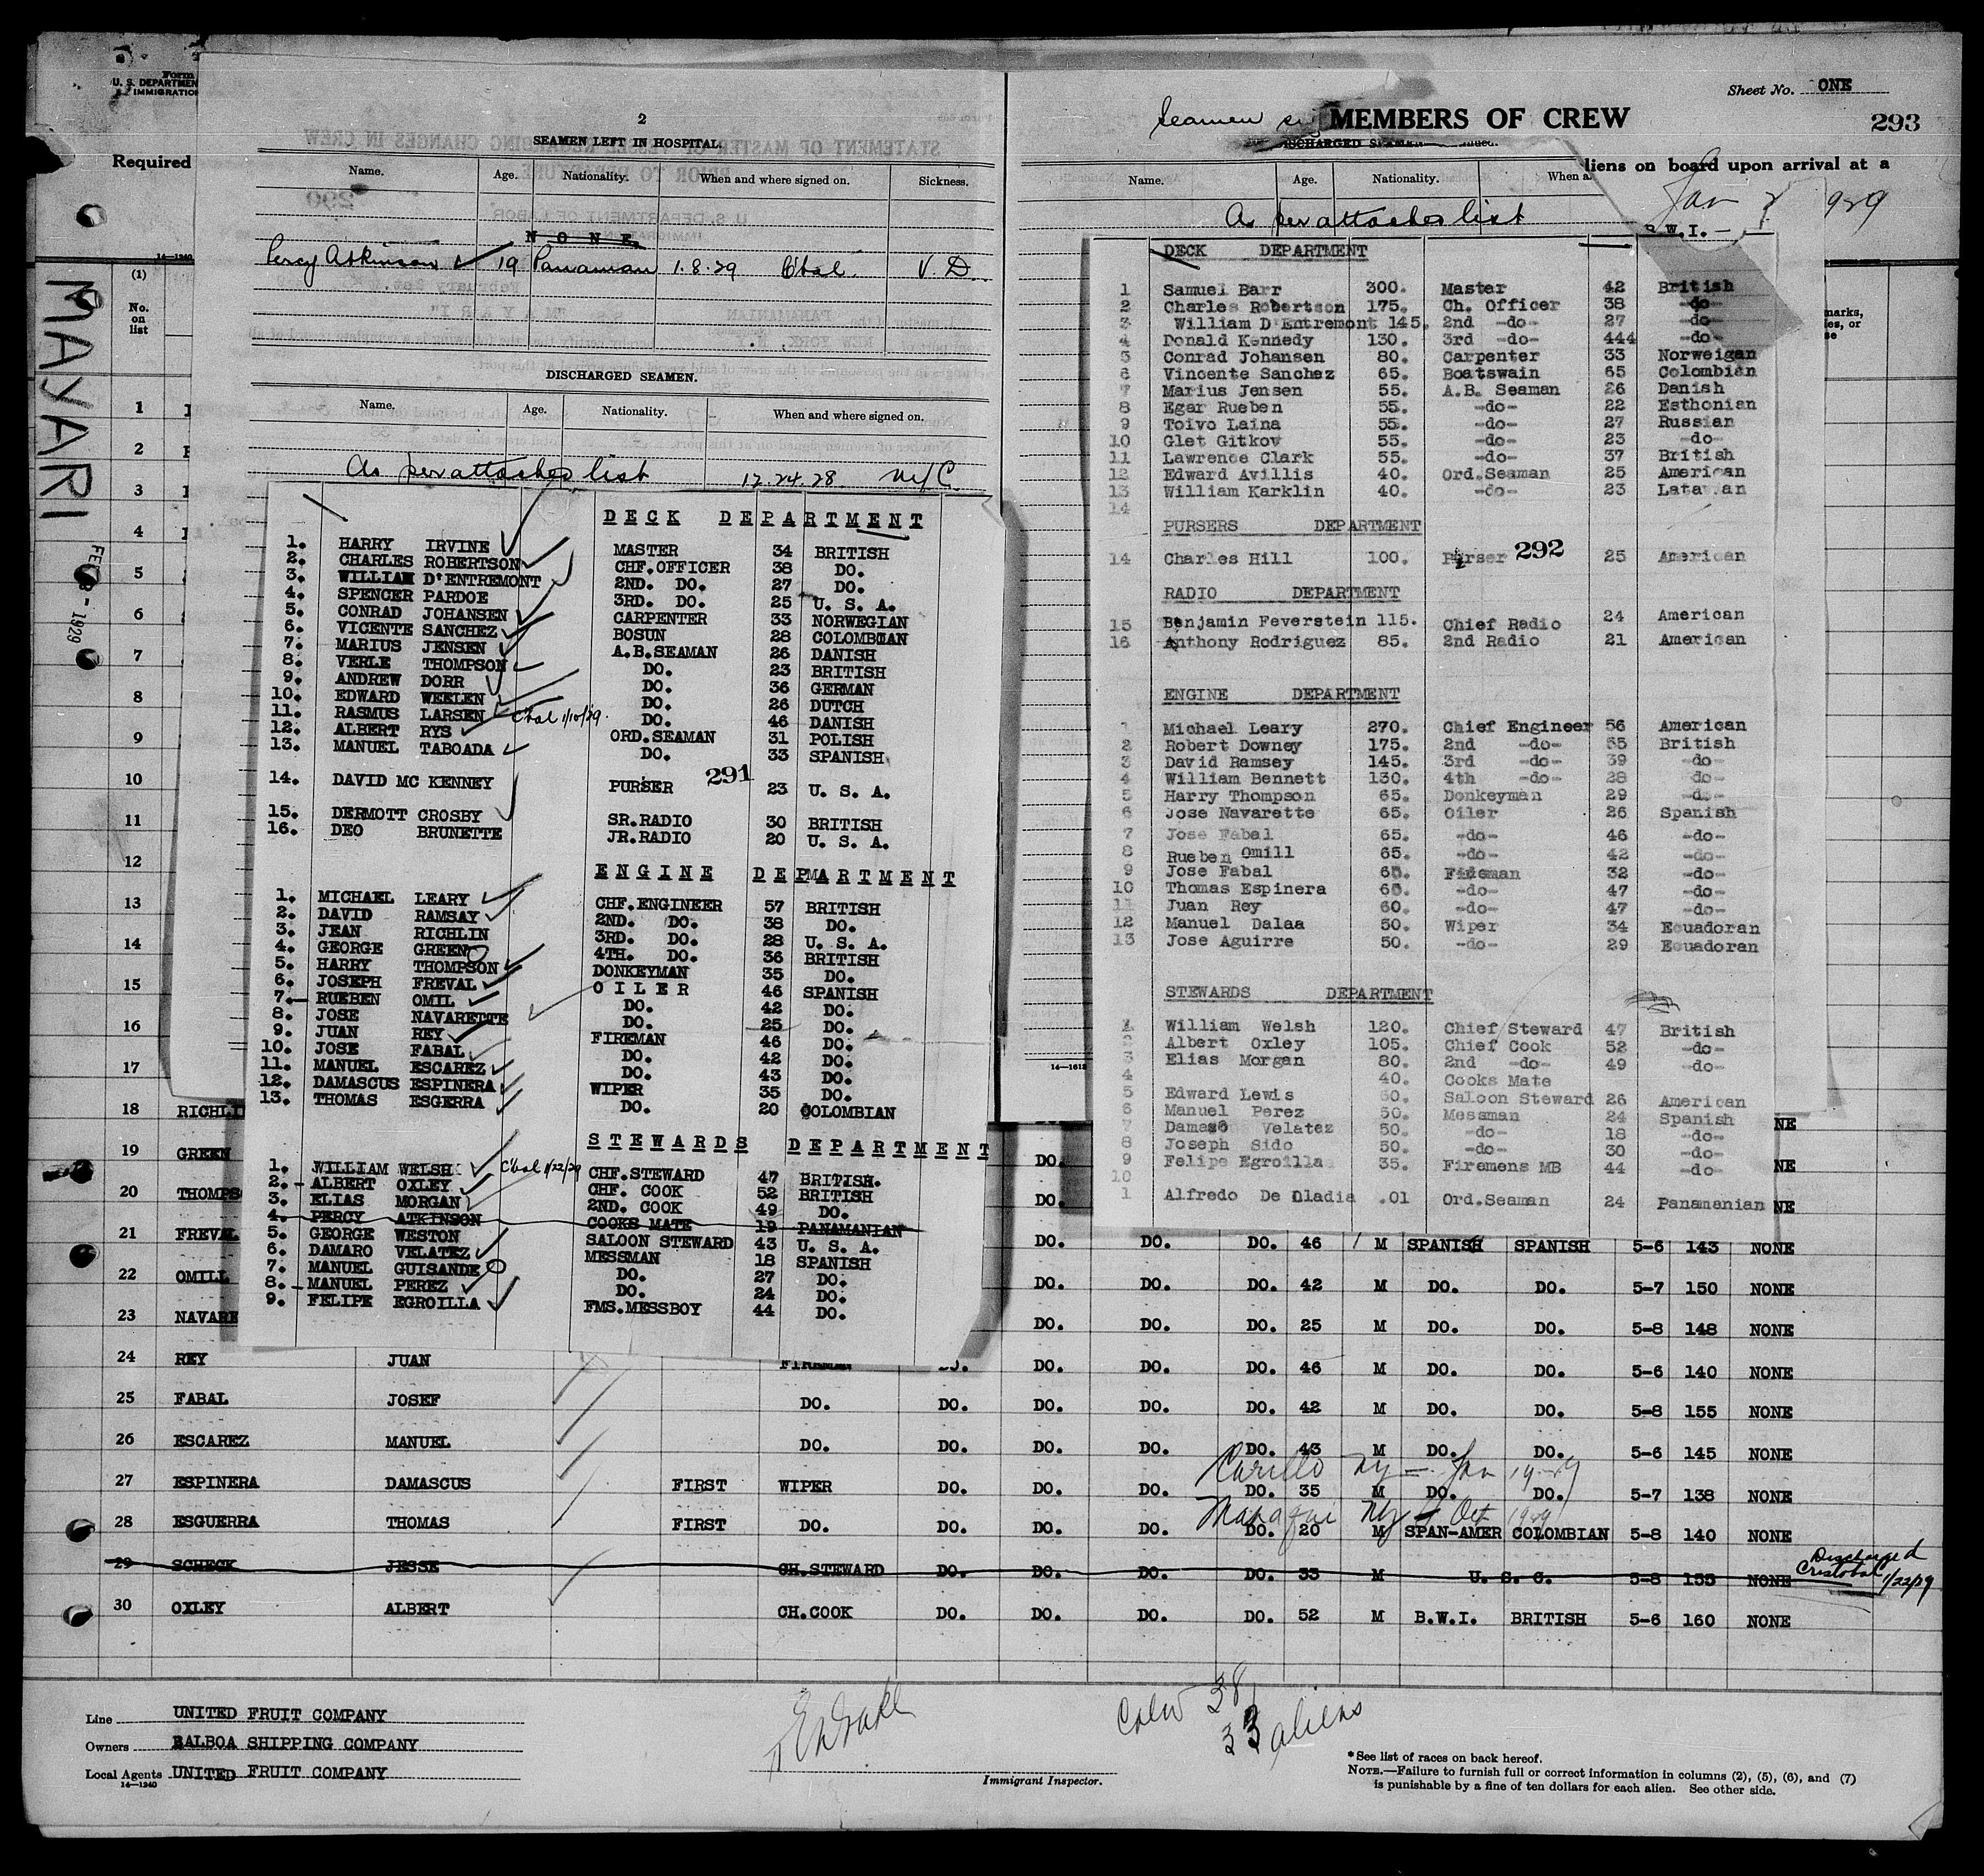 Form
U. S. DEPARTMEN
IMMIGRATIO
Required
14—1240
(1)
No.
on
list
MAYARI
FEB
- 1929
2
SEAMEN LEFT IN HOSPITAL.
Name. Age. Nationality. When and where signed on. Sickness.
NONE
Percy Atkinson 19 Panaman 1.8.29 C'bal. V. D.
DISCHARGED SEAMEN.
Name. Age. Nationality. When and where signed on.
As per attached list 12.24.28 N/C
DECK DEPARTMENT
1. HARRY IRVINE MASTER 34 BRITISH
2. CHARLES ROBERTSON CHF.OFFICER 38 DO.
3. WILLIAM D'ENTREMONT 2ND. DO. 27 DO.
4. SPENCER PARDOE 3RD. DO. 25 U. S. A.
5. CONRAD JOHANSEN CARPENTER 33 NORWEGIAN
6. VICENTE SANCHEZ BOSUN 28 COLOMBIAN
7. MARIUS JENSEN A.B.SEAMAN 26 DANISH
8. VERLE THOMPSON DO. 23 BRITISH
9. ANDREW DORR DO. 36 GERMAN
10. EDWARD WEELEN DO. 26 DUTCH
11. RASMUS LARSEN C'bal 1/10/29. DO. 46 DANISH
12. ALBERT RYS ORD.SEAMAN 31 POLISH
13. MANUEL TABOADA DO. 33 SPANISH
291
14. DAVID MC KENNEY PURSER 23 U. S. A.
15. DERMOTT CROSBY SR.RADIO 30 BRITISH
16. DEO BRUNETTE JR.RADIO 20 U. S. A.
ENGINE DEPARTMENT
1. MICHAEL LEARY CHF.ENGINEER 57 BRITISH
2. DAVID RAMSAY 2ND. DO. 38 DO.
3. JEAN RICHLIN 3RD. DO. 28 U. S. A.
4. GEORGE GREEN 4TH. DO. 36 BRITISH
5. HARRY THOMPSON DONKEYMAN 35 DO.
6. JOSEPH FREVAL OILER 46 SPANISH
7. RUEBEN OMIL DO. 42 DO.
8. JOSE NAVARETTE DO. 25 DO.
9. JUAN REY FIREMAN 46 DO.
10. JOSE FABAL DO. 42 DO.
11. MANUEL ESCAREZ DO. 43 DO.
12. DAMASCUS ESPINERA WIPER 35 DO.
13. THOMAS ESGERRA DO. 20 COLOMBIAN
STEWARDS DEPARTMENT
1. WILLIAM WELSH C'bal 1/22/29 CHF.STEWARD 47 BRITISH.
2. ALBERT OXLEY CHF. COOK 52 BRITISH
3. ELIAS MORGAN 2ND. COOK 49 DO.
4. PERCY ATKINSON COOKS MATE 19 PANAMANIAN
5. GEORGE WESTON SALOON STEWARD 43 U. S. A.
6. DAMARO VELATEZ MESSMAN 18 SPANISH
7. MANUEL GUISANDE DO. 27 DO.
8. MANUEL PEREZ DO. 24 DO.
9. FELIPE EGROILLA FMS.MESSBOY 44 DO.
Sheet No. ONE
Seamen
MEMBERS OF CREW
293
DISCHARGED SEAMEN
liens on board upon arrival at a
Name. Age. Nationality. When a
As per attached list
Jan 929
B.W.I.-
marks,
es, or
se
DECK DEPARTMENT
1 Samuel Barr 300. Master 42 British
2 Charles Robertson 175. Ch. Officer 38 -do-
3 William D'Entremont 145. 2nd -do- 27 -do-
4 Donald Kennedy 130. 3rd -do- 444 -do-
5 Conrad Johansen 80. Carpenter 33 Norweigan
6 Vincente Sanchez 65. Boatswain 65 Colombian
7 Marius Jensen 55. A.B. Seaman 26 Danish
8 Egar Rueben 55. -do- 22 Esthonian
9 Toivo Laina 55. -do- 27 Russian
10 Glet Gitkov 55. -do- 23 -do-
11 Lawrence Clark 55. -do- 37 British
12 Edward Avillis 40. Ord.Seaman 25 American
13 William Karklin 40. -do- 23 Latavian
14
PURSERS DEPARTMENT
14 Charles Hill 100. Purser 292 25 American
RADIO DEPARTMENT
15 Benjamin Feverstein 115. Chief Radio 24 American
16 Anthony Rodriguez 85. 2nd Radio 21 American
ENGINE DEPARTMENT
1 Michael Leary 270. Chief Engineer 56 American
2 Robert Downey 175. 2nd -do- 55 British
3 David Ramsey 145. 3rd -do- 39 -do-
4 William Bennett 130. 4th -do- 28 -do-
5 Harry Thompson 65. Donkeyman 29 -do-
6 Jose Navarette 65. Oiler 26 Spanish
7 Jose Fabal 65. -do- 46 -do-
8 Rueben Omill 65. -do- 42 -do-
9 Jose Fabal 60. Fireman 32 -do-
10 Thomas Espinera 60. -do- 47 -do-
11 Juan Rey 60. -do- 47 -do-
12 Manuel Dalaa 50. Wiper 34 Ecuadoran
13 Jose Aguirre 50. -do- 29 Ecuadoran
STEWARDS DEPARTMENT
1 William Welsh 120. Chief Steward 47 British
2 Albert Oxley 105. Chief Cook 52 -do-
3 Elias Morgan 80. 2nd -do- 49 -do-
4 40. Cooks Mate
5 Edward Lewis 60. Saloon Steward 26 American
6 Manuel Perez 50. Messman 24 Spanish
7 Damaso Velatez 50. -do- 18 -do-
8 Joseph Sido 50. -do- 30 -do-
9 Felipe Egroilla 35. Firemens MB 44 -do-
10
1 Alfredo De Dladia .01 Ord.Seaman 24 Panamanian
1
2
3
4
5
6
7
8
9
10
11
12
13
14
15
16
17
18 RICHLI NE
19 GREEN DO. NE
20 THOMPS DO. NE
21 FREVAL DO. DO. DO. 46 M SPANISH SPANISH 5-6 143 NONE
22 OMILL DO. DO. DO. 42 M DO. DO. 5-7 150 NONE
23 NAVARE DO. DO. DO. 25 M DO. DO. 5-8 148 NONE
24 REY JUAN FIREMAN DO. DO. DO. DO. 46 M DO. DO. 5-6 140 NONE
25 FABAL JOSEF DO. DO. DO. DO. DO. 42 M DO. DO. 5-8 155 NONE
26 ESCAREZ MANUEL DO. DO. DO. DO. DO. 43 M DO. DO. 5-6 145 NONE
Carillo Ny - Jan 14-29
27 ESPINERA DAMASCUS FIRST WIPER DO. DO. DO. DO. 35 M DO. DO. 5-7 138 NONE
Ny Oct 1929
28 ESGUERRA THOMAS FIRST DO. DO. DO. DO. 20 M SPAN-AMER COLOMBIAN 5-8 140 NONE
29 SCHECK JESSE CH.STEWARD DO. DO. DO. DO. 33 M U. S. C. 5-8 155 NONE Discharged Cristobal 1/22/29
30 OXLEY ALBERT CH.COOK DO. DO. DO. DO. 52 M B.W.I. BRITISH 5-6 160 NONE
Line UNITED FRUIT COMPANY
Owners BALBOA SHIPPING COMPANY
Local Agents UNITED FRUIT COMPANY
14—1240
Immigrant Inspector.
Crew 38
33 aliens
*See list of races on back hereof.
NOTE.—Failure to furnish full or correct information in columns (2), (5), (6), and (7)
is punishable by a fine of ten dollars for each alien. See other side.